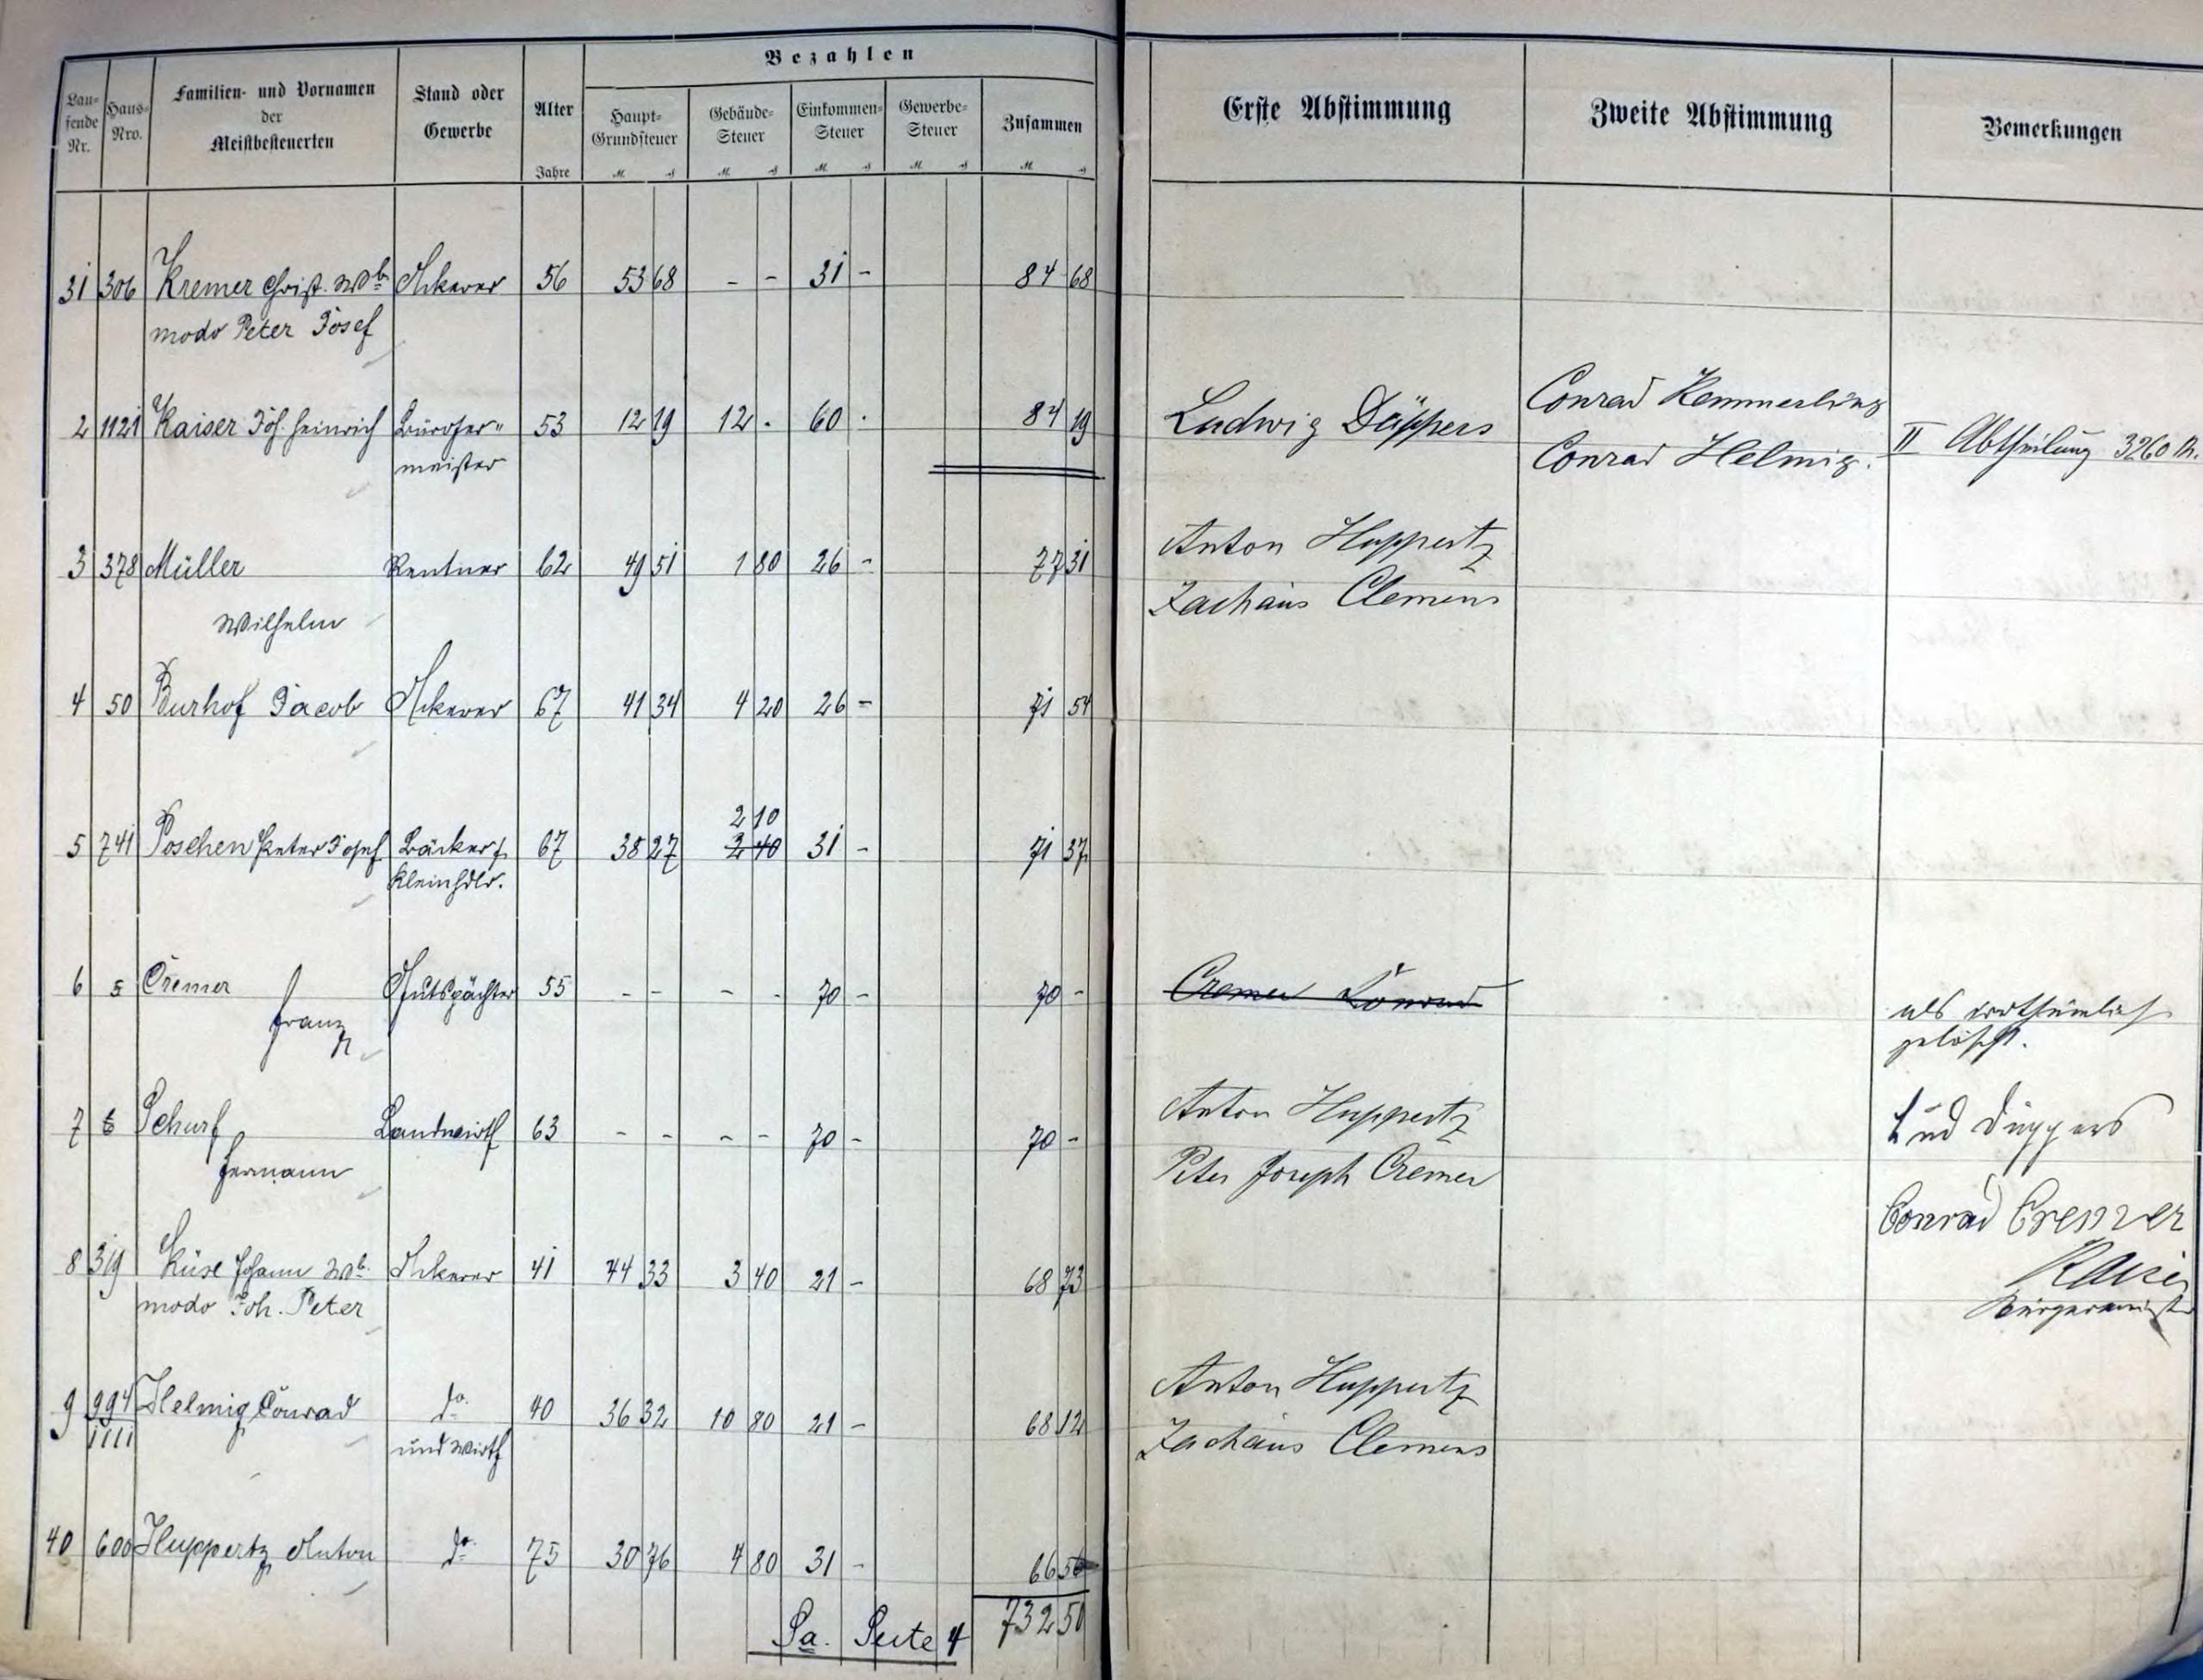 Bezahlen
Laufende Nr. Haus-Nro. Familien- und Vornamen der Meistbesteuerten Stand oder Gewerbe Alter Jahre Haupt-Grundsteuer Gebäude-Steuer Einkommen-Steuer Gewerbe-Steuer Zusammen Erste Abstimmung Zweite Abstimmung Bemerkungen
31 306 Kremer Christ. Wb. Ackerer 56 53 68 - - 31 - 84 68
modo Peter Josef
2 1121 Kaiser Joh. Heinrich Bürger- 53 12 19 12 . 60 . 84 19 Ludwig Düppers Conrad Kemmerling
meister Conrad Helmig. II Abtheilung 3260 M.
3 378 Müller Rentner 62 49 51 1 80 26 - 77 31 Anton Huppertz
Wilhelm Zachäus Clemens
4 50 Burhof Jacob Ackerer 67 41 34 4 20 26 - 71 54
2 10
5 741 Poschen Peter Josef Bäcker 67 38 27 2 40 31 - 71 37
Kleinhdlr.
6 5 Cremer Gutspächter 55 - - - - 70 - 70 - Cremer Konrad als irrthümlich
Franz gelöscht.
7 6 Schurf Landwirth 63 - - - - 70 - 70 - Anton Huppertz Lud Düppers
Hermann Peter Joseph Cremer
Conrad Cremer
8 319 Küse Johann Wb. Ackerer 41 44 33 3 40 21 - 68 73 Kaiser
modo Joh. Peter Bürgermeister
9 994 Helmig Conrad do. 40 36 32 10 80 21 - 68 12 Anton Huppertz
1111 und Wirth Zachäus Clemens
40 600 Huppertz Anton do. 75 30 76 4 80 31 - 66 56
Sa. Seite 4 732 50